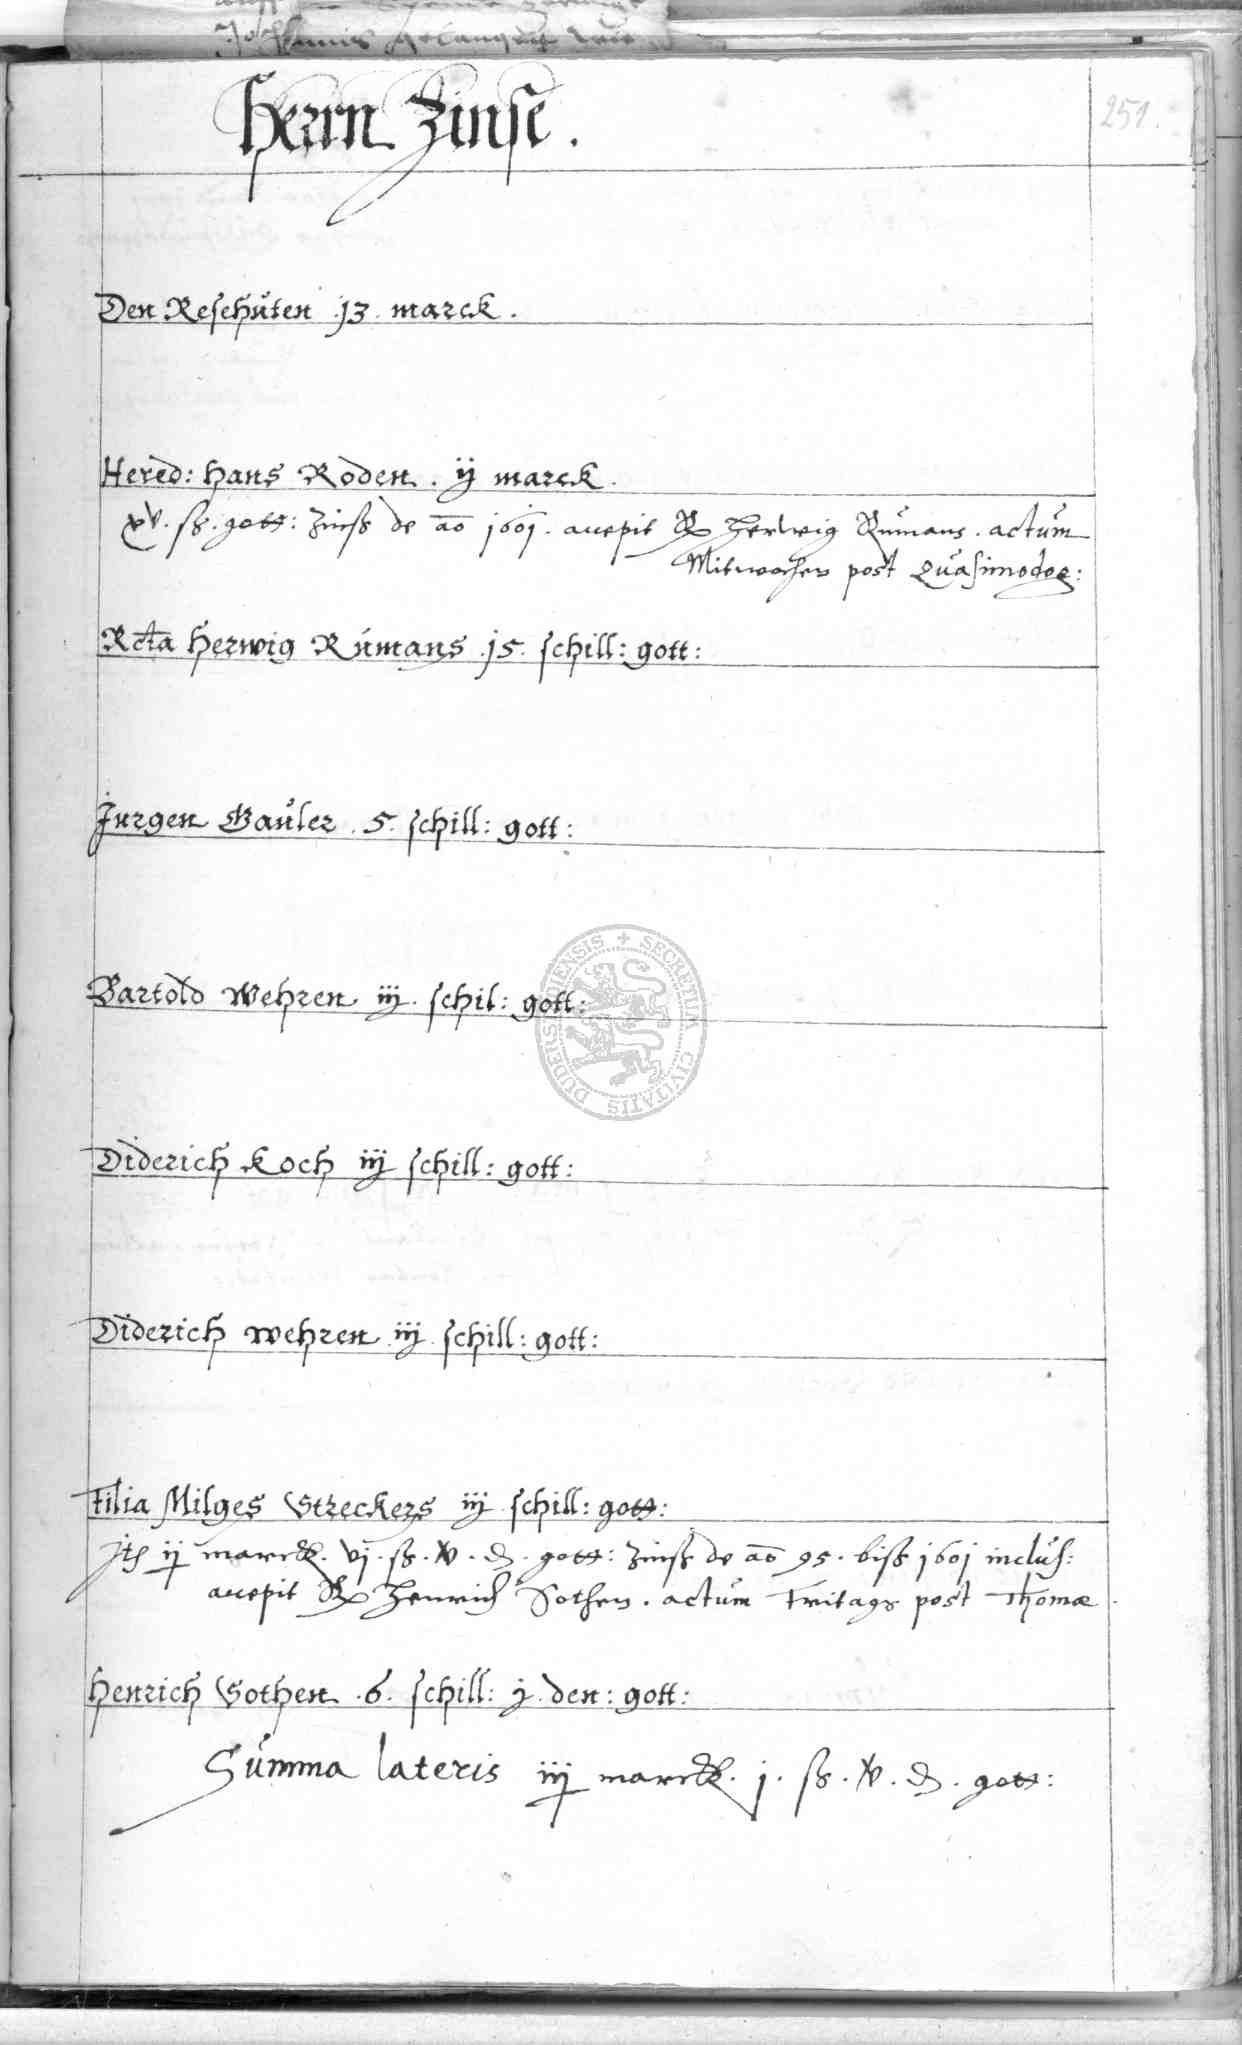 Herrn Zinse.
251.
Den Resehuten .13. marck.
Hered: Hans Roden. ij marck.
xv. ß. gott: Zinß de ao 1601. accepit Herwig Rumans. actum
Mitwochen post Quasimodog:
Rcta Herwig Rumans .15. schill: gott:
Jurgen Gauler .5. schill: gott:
Bartold Wehren iij. schil: gott:
Diderich Koch iij schill: gott:
Diderich wehren iij. schill: gott:
filia Milges Streckers iij schill: gott:
ij marck. vj. ß. gott: Zinß de ao 95. biß 1601 inclus:
accepit Henrich Sothen. actum Fritags post Thomæ.
Henrich Sothen .6. schill: j. den: gott:
Summa lateris iij marck. j. ß. gott:
SECRETUM CIVITATIS DUDERSTADIENSIS